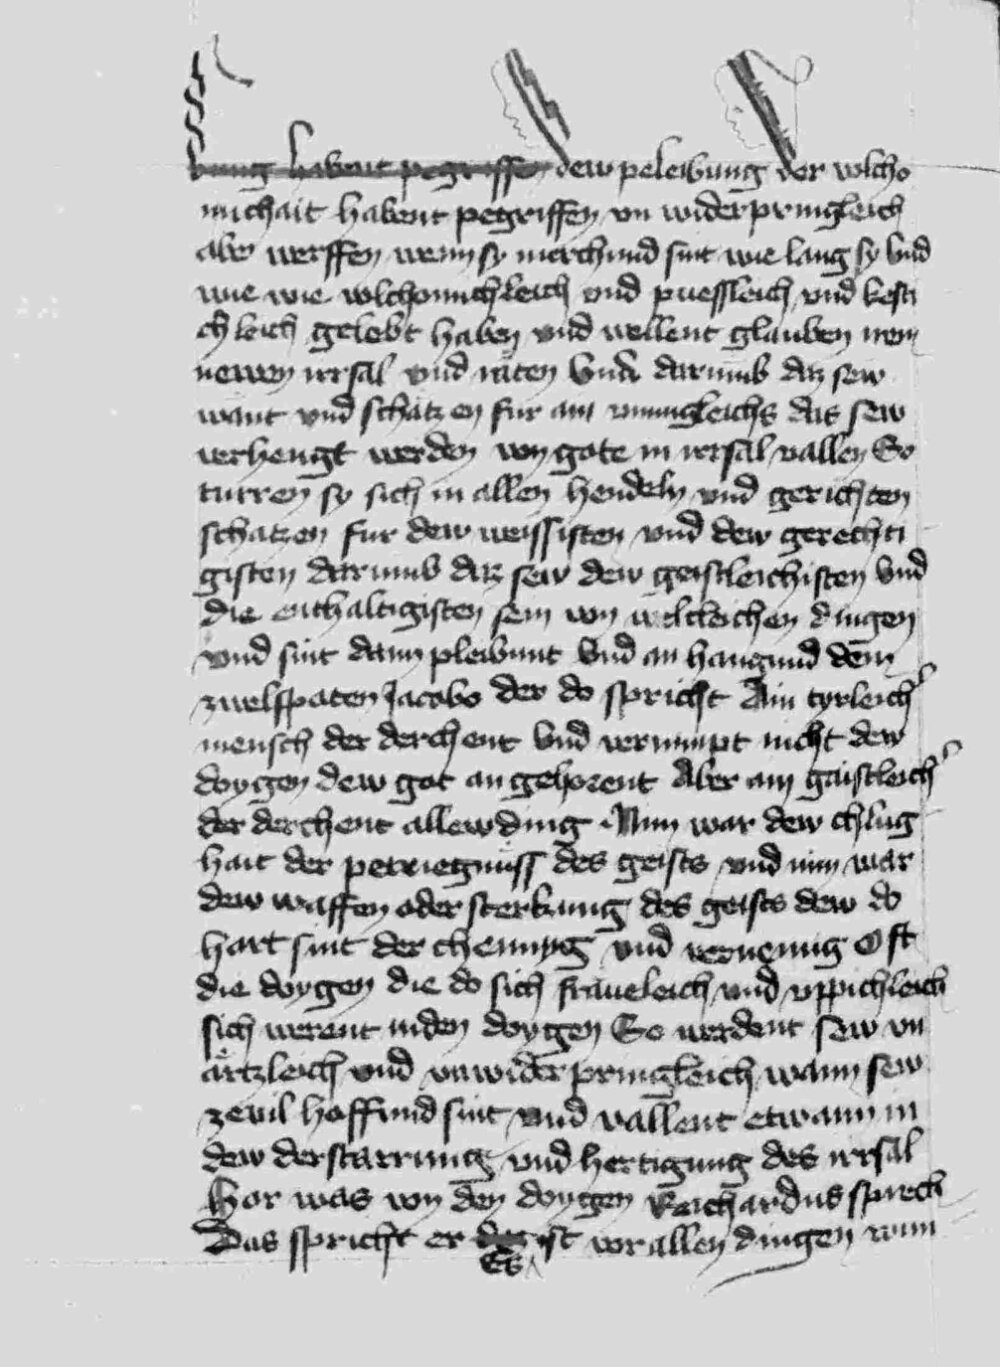 bung habent pegriffen dew peleibung der volcho
michait habent pegriffen vn widerpringleich
aber werffen wenn sy merchund sint wie lang sy vnd
wie wie volchomichleich vnd puessleich vnd kesti
chleich gelebt haben vnd wellent glauben irem
newen irrsal vnd raten vnd darumb daz sew
want vnd schatzen fur ain vmugleichs das sew
verhengt werden von gote in irrsal vallen So
turren sy sich in allen hendeln vnd gerichten
schatzen fur dew weissisten vnd dew gerechti
gisten darumb daz sew dew geistleichisten vnd
die enthaltigisten sein von weltleichen dingen
vnd sint dann pleibunt vnd an hangund dem
zwelfpoten Jacobo der do spricht Ain tyrleich
mensch der derchent vnd vernimpt nicht dew
doygen dew got an gehorent Aber ain gaistleich
der derchent allew ding Nun war dew chlug
hait der petriegnuss des geists vnd nim war
dew waffen oder sterkung des geists dew do
hart sint der chennung vnd verneinig Oft
die doygen die do sich fraueleich vnd vppichleich
sich werent in den doygen So werdent sew vn
artzleich vnd vnwiderpringleich wann sew
ze vil hoffund sint vnd vallent etwann in
dew derstarrung vnd hertigung des irrsal
Hor was von den doygen Reichardus sprech
Das spricht er ist vor allen dingen
Es